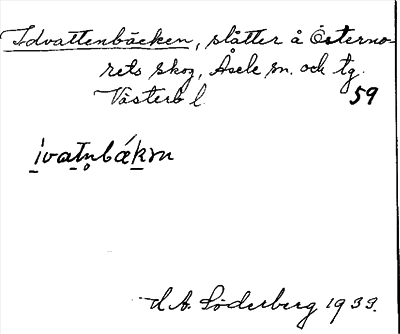 Idvattenbäcken, slåtter å Österno-
rets skog, Åsele sn. och tg.
Västerb l. 59
i̱vatn̥bækm
d A. Söderberg 1933.